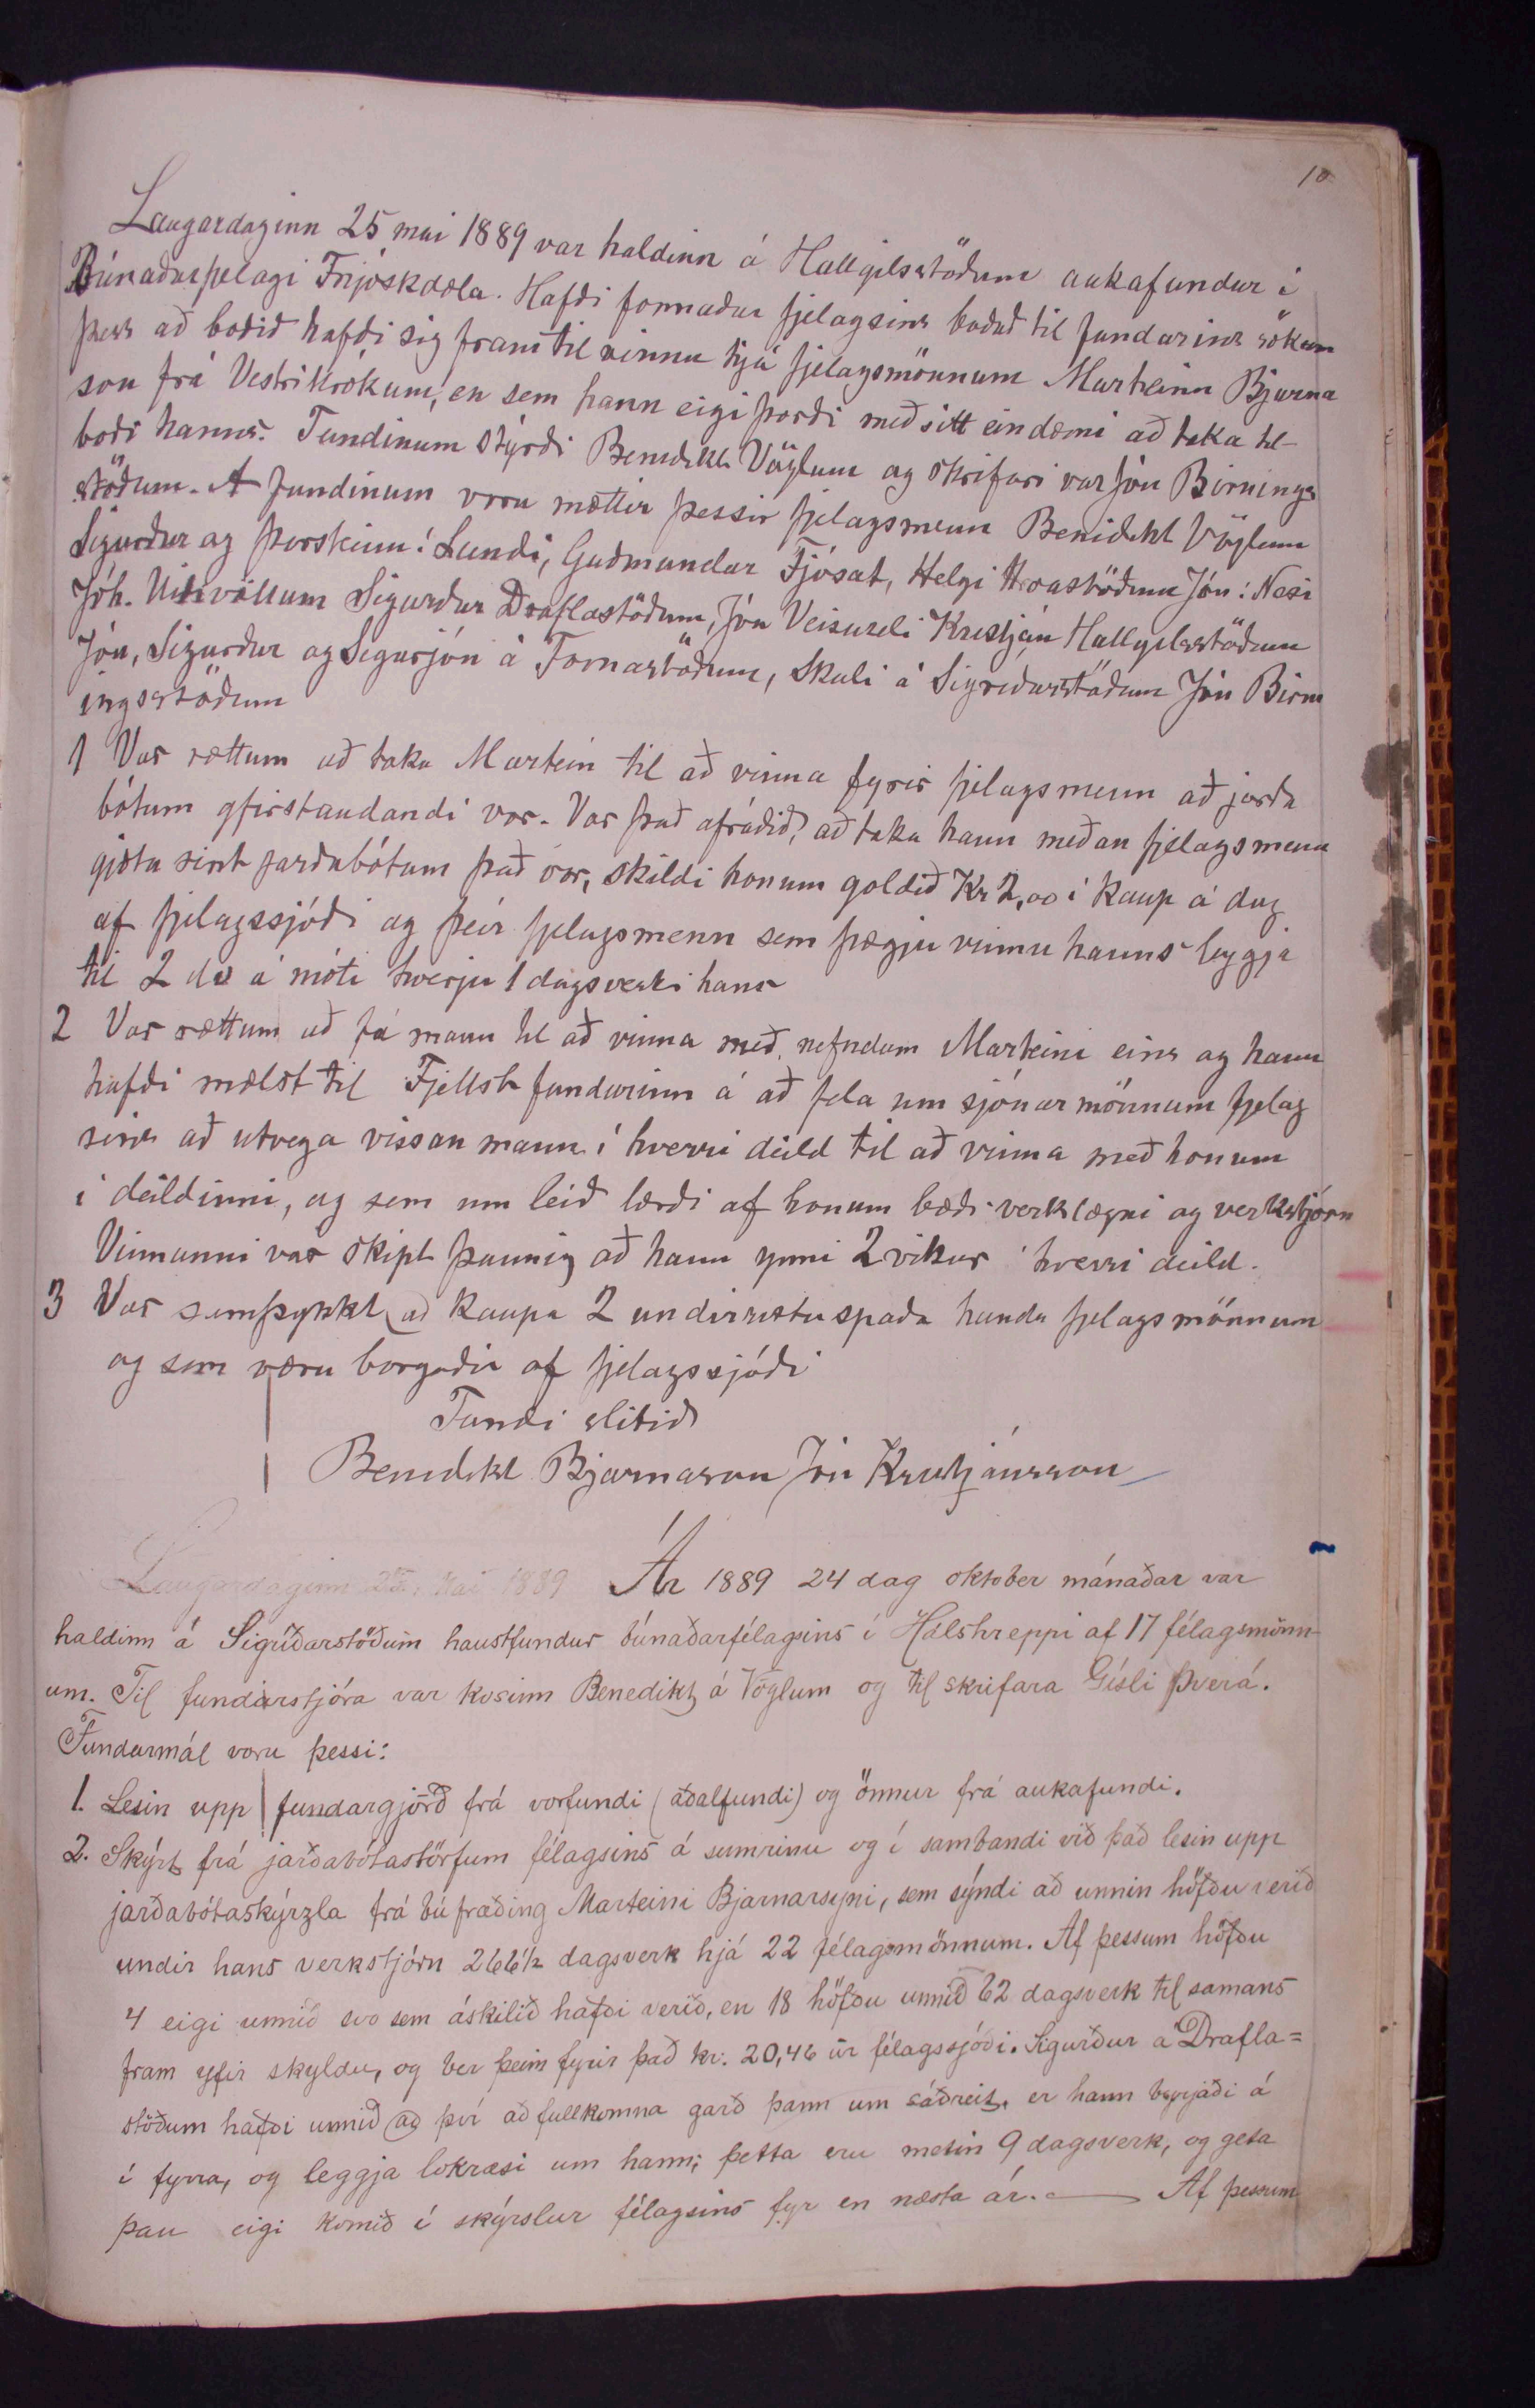 10
Laugardaginn 25 mai 1889 var haldinn á Hallgilsstöðum aukafundur í
Búnaðarfjelagi Fnjóskdæla. Hafði formaður fjelagsins boðað til fundarins sökum
þess að boðið hafði sig fram til vinnu hjá fjelagsmönnum Marteinn Bjarna
son frá Vestrikrókum, en sem hann eigi þorði með sitt eindæmi að taka til
boði hanns. Fundinum stýrði Benedikt Vöglum og skrifari var Jón Birnings
stöðum. A fundinum voru mættir þessir fjelagsmenn Benidikt Vöglum
Sigurður og Þorsteinn í Lundi, Guðmundur Fjósat, Helgi Hróastöðum Jón í Nesi
Jóh. Uitivöllum Sigurður Draflastöðum, Jón Veisuseli Kristján Hallgilsstöðum
Jón, Sigurður og Sigurjón á Fornastöðum, Skuli á Sigríðarstöðum Jón Birn
ingsstöðum
1 Var rættum að taka Martein til að vinna fyrir fjelagsmenn að jarða
bótum yfirstandandi vor. Var það afráðið, að taka hann meðan fjelagsmenn
gjætu sint jarðabótum það vor, skildi honum goldið Kr 2,00 í kaup á dag
af fjelagssjóði og þeir fjelagsmenn sem þægju vinnu hanns leggja
til 2 do á móti hverju 1 dagsverki hans
2 Var rættum að fá mann til að vinna með nefndum Marteini eins og hann
hafði mælst til Fjellst fundurinn á að fela um sjónarmönnum fjelag
sins að utvega vissan mann í hverri deild til að vinna með honum
i deildinni, og sem um leið lærði af honum bæði verklægni og verkstjórn
Vinnunni var skipt þannig að hann ynni 2 vikur í hverri deild.
3 Var samþykkt að kaupa 2 undirristuspaða handa fjelagsmönnum
og sem væru borgaðir af fjelagssjóði
Fundi slitið
Benedikt Bjarnason Jón Kristjánsson
Laugardaginn 25. Mai 1889 Ár 1889 24 dag oktober mánaðar var
haldinn á Sigríðarstöðum haustfundur búnaðarfélagsins í Hálshreppi af 17 félagsmönn-
um. Til fundarstjóra var kosinn Benedikt á Vöglum og til skrifara Gísli Þverá.
Fundarmál voru þessi:
1. Lesin upp fundargjörð frá vorfundi (aðalfundi) og önnur frá aukafundi.
2. Skýrt frá jarðabótastörfum félagsins á sumrinu og í sambandi við það lesin upp
jarðabótaskýrzla frá búfræðing Marteini Bjarnarsyni, sem sýndi að unnin höfðu verið
undir hans verkstjórn 266½ dagsverk hjá 22 félagsmönnum. Af þessum höfðu
4 eigi unnið svo sem áskilið hafði verið, en 18 höfðu unnið 62 dagsverk til samans
fram yfir skyldu, og ber þeim fyrir það kr. 20,46 úr félagssjóði. Sigurður á Drafla=
stöðum hafði unnið að því að fullkomna garð þann um sáðreit, er hann byrjaði á
í fyrra, og leggja lokræsi um hann; þetta eru metin 9 dagsverk, og geta
þau eigi komið í skýrslur félagsins fyr en næsta ár. — Af þessum